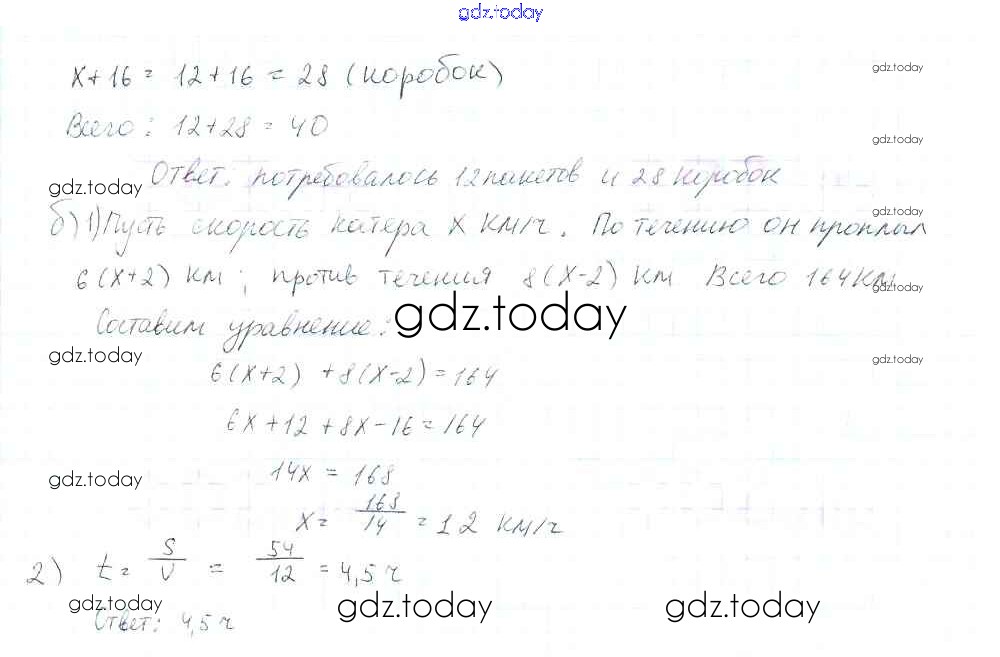 gdz.today
x+16 = 12+16 = 28 (коробок)
gdz.today
Всего: 12+28 = 40
gdz.today
Ответ: потребовалось 12 пакетов и 28 коробок
gdz.today
б) 1) Пусть скорость катера x км/ч. По течению он проплыл
gdz.today
6(x+2) км; против течения 8(x-2) км Всего 164 км
gdz.today
Составим уравнение:
gdz.today
gdz.today
gdz.today
6(x+2) + 8(x-2) = 164
6x+12+8x-16=164
14x = 168
gdz.today
x = 168/14 = 12 км/ч
2) t = S/V = 54/12 = 4,5 ч
gdz.today
gdz.today
gdz.today
Ответ: 4,5 ч